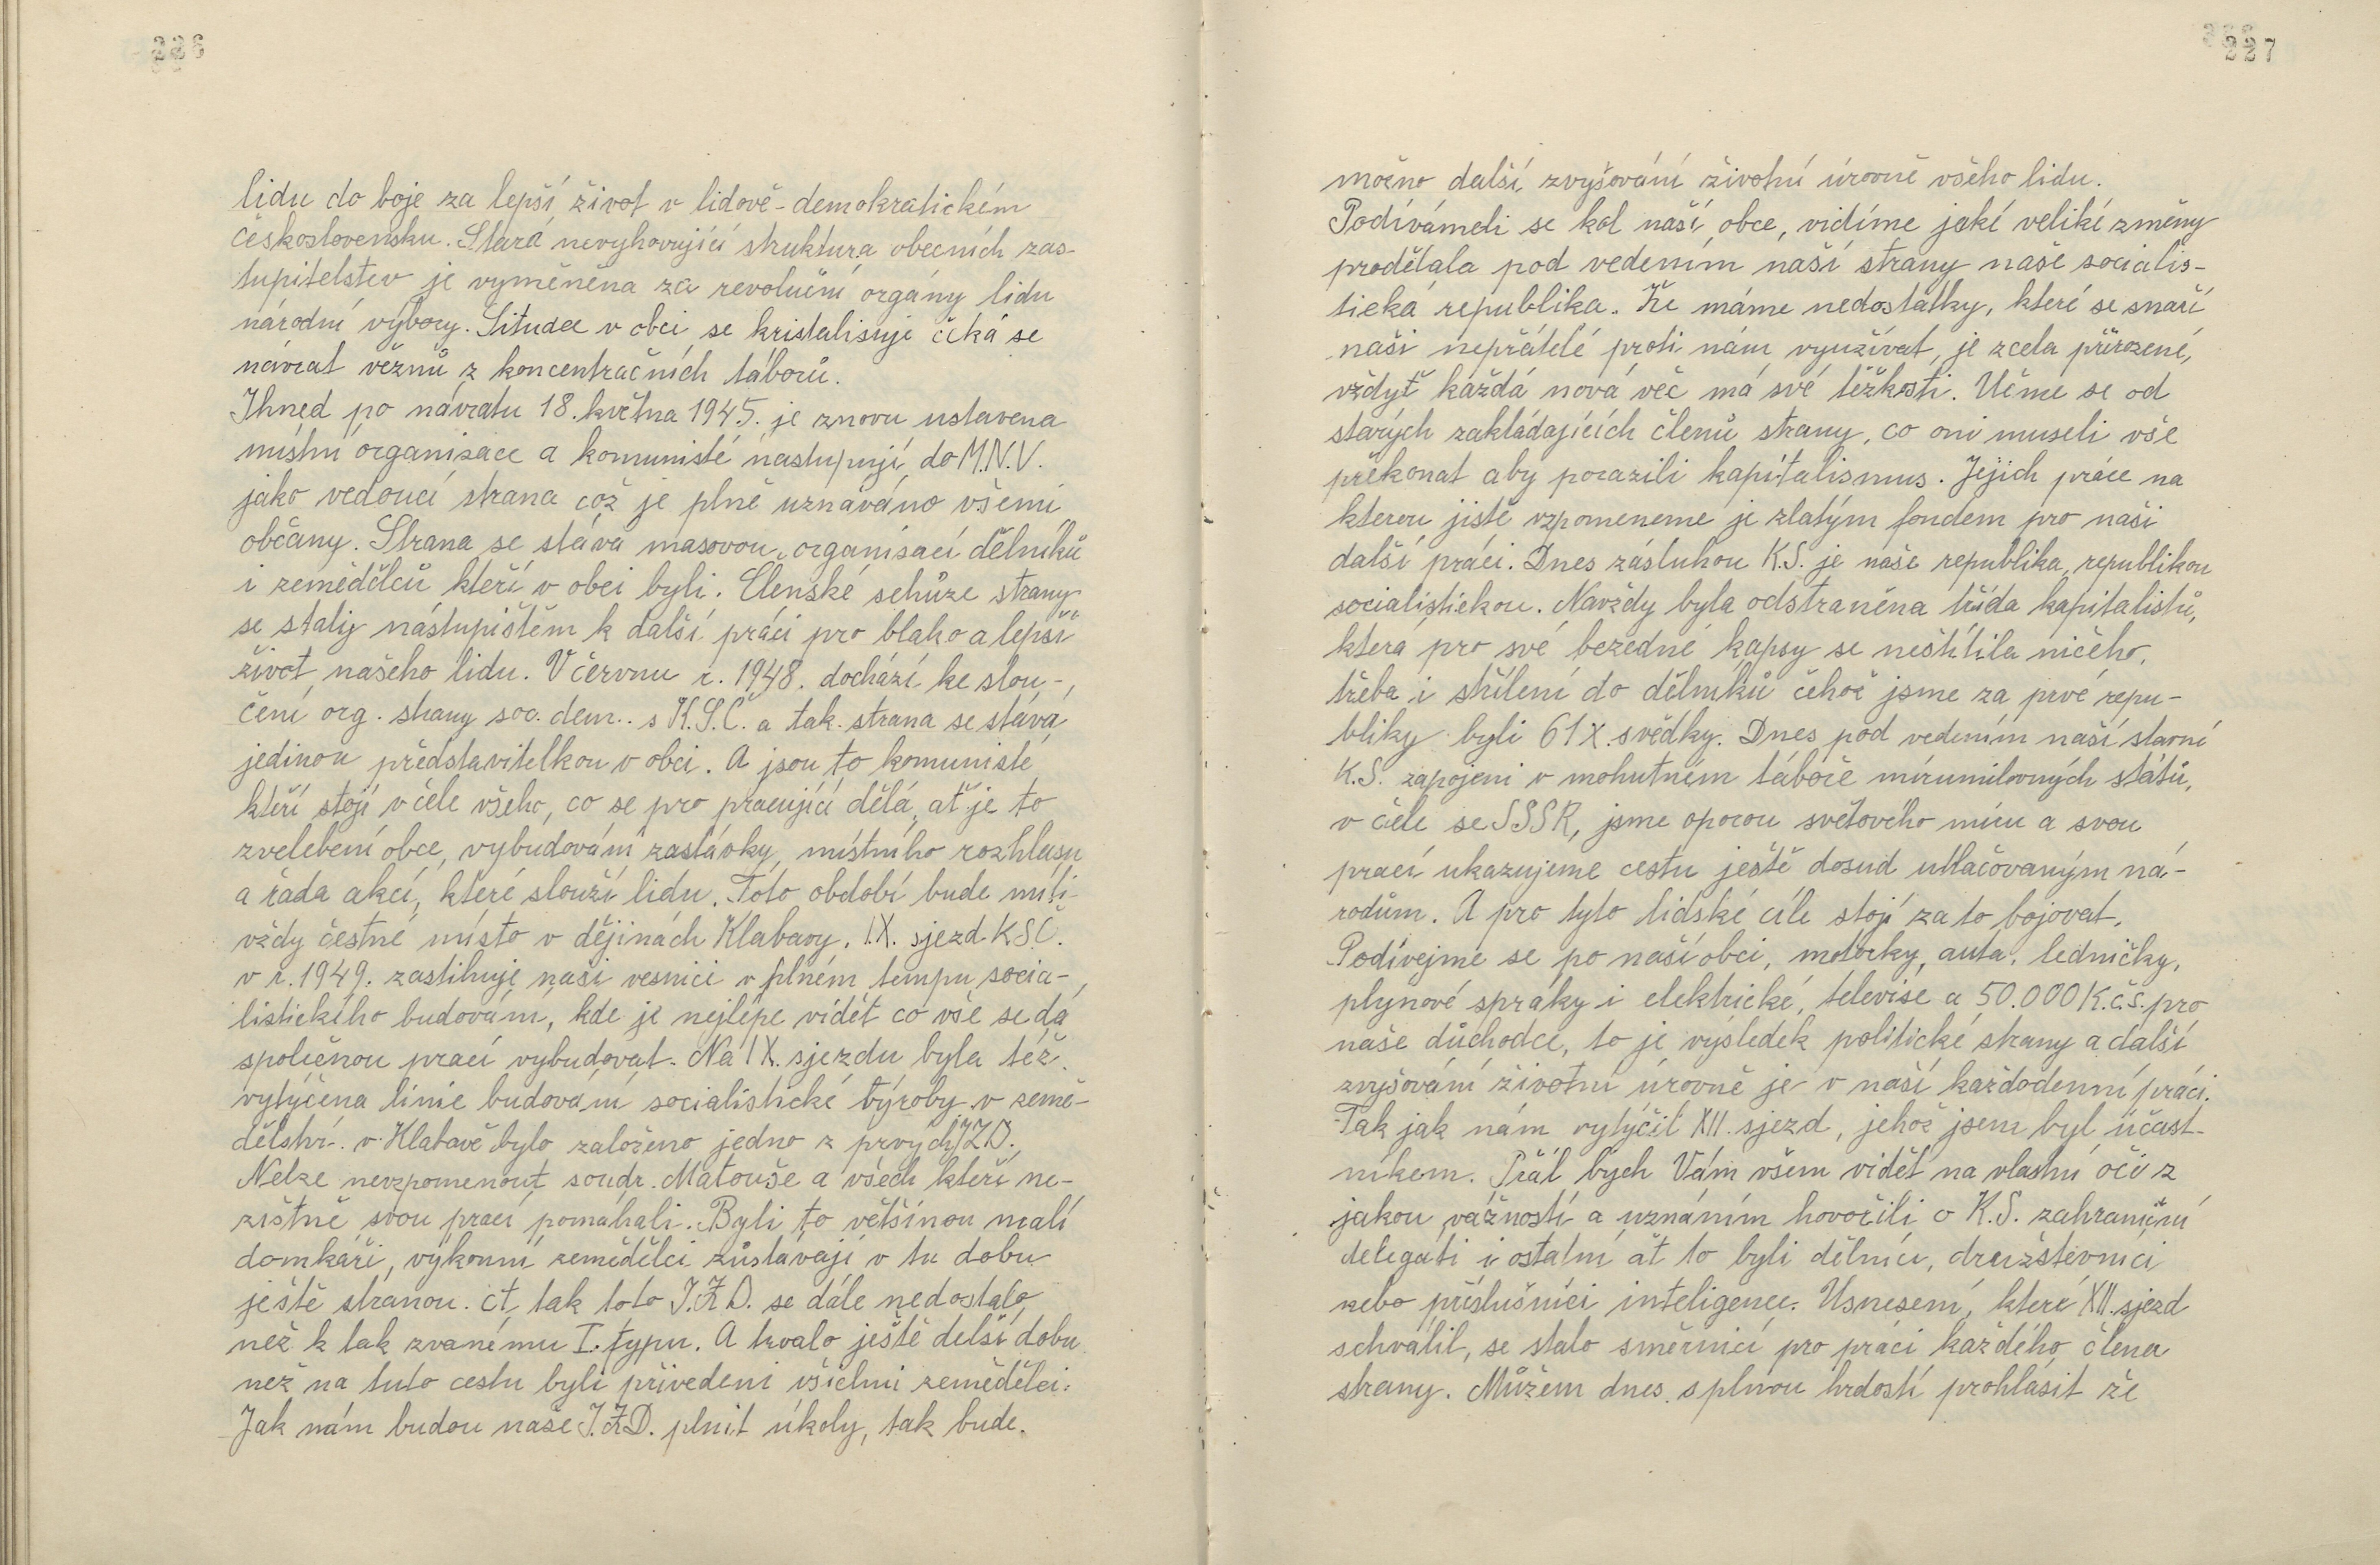 226
lidu do boje za lepší život v lidově-demokratickém
československu. Stará nevyhovující struktura obecních zas-
tupitelstev je vyměněna za revoluční orgány lidu
národní výbory. Situace v obci se kristalisuje čeká se
návrat vězňů z koncentračních táborů.
Ihned po návratu 18. května 1945. je znovu ustavena
místní organisace a komunisté nastupují do M.N.V.
jako vedoucí strana což je plně uznáváno všemi
občany. Strana se stává masovou organisací dělníků
i zemědělců kteří v obci byli. Členské schůze strany
se staly nástupištěm k další práci pro blaho a lepší
život našeho lidu. V červnu r. 1948. dochází ke slou-
čení org. strany soc. dem.. s K.S.Č. a tak strana se stává
jedinou představitelkou v obci. A jsou to komunisté
kteří stojí v čele všeho, co se pro pracující dělá, ať je to
zvelebení obce, vybudování zastávky, místního rozhlasu
a řada akcí, které slouží lidu. Toto období bude míti
vždy čestné místo v dějinách Klabavy. IX. sjezd KSČ.
v r. 1949. zastihuje naši vesnici v plném tempu socia-
listického budování, kde je nejlépe vidět co vše se dá
společnou prací vybudovat. Na IX. sjezdu byla též
vytýčena linie budování socialistické výroby v země-
dělství. v Klabavě bylo založeno jedno z prvých JZD.
Nelze nevzpomenout soudr. Matouše a všech kteří ne-
zištně svou prací pomáhali. Byli to většinou malí
domkáři, výkonní zemědělci zůstávají v tu dobu
ještě stranou. A tak toto J.Z.D. se dále nedostalo
než k tak zvanému I. typu. A trvalo ještě delší dobu
než na tuto cestu byli přivedeni všichni zemědělci.
Jak nám budou naše J.Z.D. plnit úkoly, tak bude.
227
možno další zvyšování životní úrovně všeho lidu.
Podívámeli se kol naší obce, vidíme jaké veliké změny
prodělala pod vedením naší strany naše socialis-
tická republika. Že máme nedostatky, které se snaží
naši nepřátelé proti nám využívat, je zcela přirozené,
vždyť každá nová věc má své těžkosti. Učme se od
starých zakládajících členů strany, co oni museli vše
překonat aby porazili kapitalismus. Jejich práce na
kterou jistě vzpomeneme je zlatým fondem pro naši
další práci. Dnes zásluhou K.S. je naše republika, republikou
socialistickou. Navždy byla odstraněna třída kapitalistů,
která pro své bezedné kapsy se neštítila ničeho,
třeba i střílení do dělníků čehož jsme za prvé repu-
bliky byli 61 x. svědky. Dnes pod vedením naší slavné
K.S. zapojeni v mohutném táboře mírumilovných států,
v čele se SSSR, jsme oporou světového míru a svou
prací ukazujeme cestu ještě dosud utlačovaným ná-
rodům. A pro tyto lidské cíle stojí za to bojovat.
Podívejme se po naší obci, motorky, auta, ledničky,
plynové sporáky i elektrické, televise a 50.000 K.čs. pro
naše důchodce, to je výsledek politické strany a další
zvyšování životní úrovně je v naší každodenní práci.
Tak jak nám vytýčil XII. sjezd, jehož jsem byl účast-
níkem. Přál bych Vám všem vidět na vlastní oči z
jakou vážností a uznáním hovořili o K.S. zahraniční
delegáti i ostatní ať to byli dělníci, družstevníci
nebo příslušníci inteligence. Usnesení, které XII. sjezd
schválil, se stalo směrnicí pro práci každého člena
strany. Můžem dnes s plnou hrdostí prohlásit že